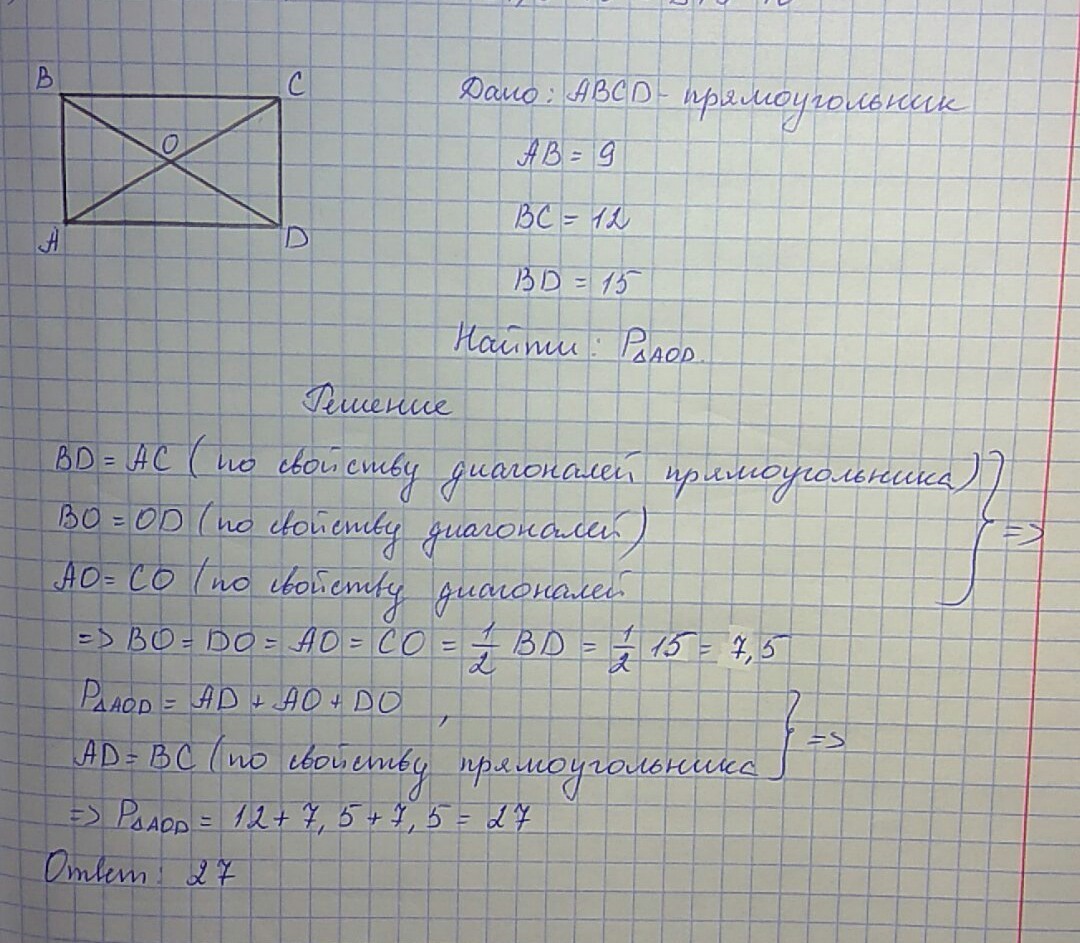 B
C
O
A
D
Дано: ABCD - прямоугольник
AB = 9
BC = 12
BD = 15
Найти: P△AOD.
Решение
BD = AC (по свойству диагоналей прямоугольника)
BO = OD (по свойству диагоналей) =>
AO = CO (по свойству диагоналей
=> BO = DO = AO = CO = 1/2 BD = 1/2 15 = 7,5
P△AOD = AD + AO + DO ,
AD = BC (по свойству прямоугольника =>
=> P△AOD = 12 + 7,5 + 7,5 = 27
Ответ: 27